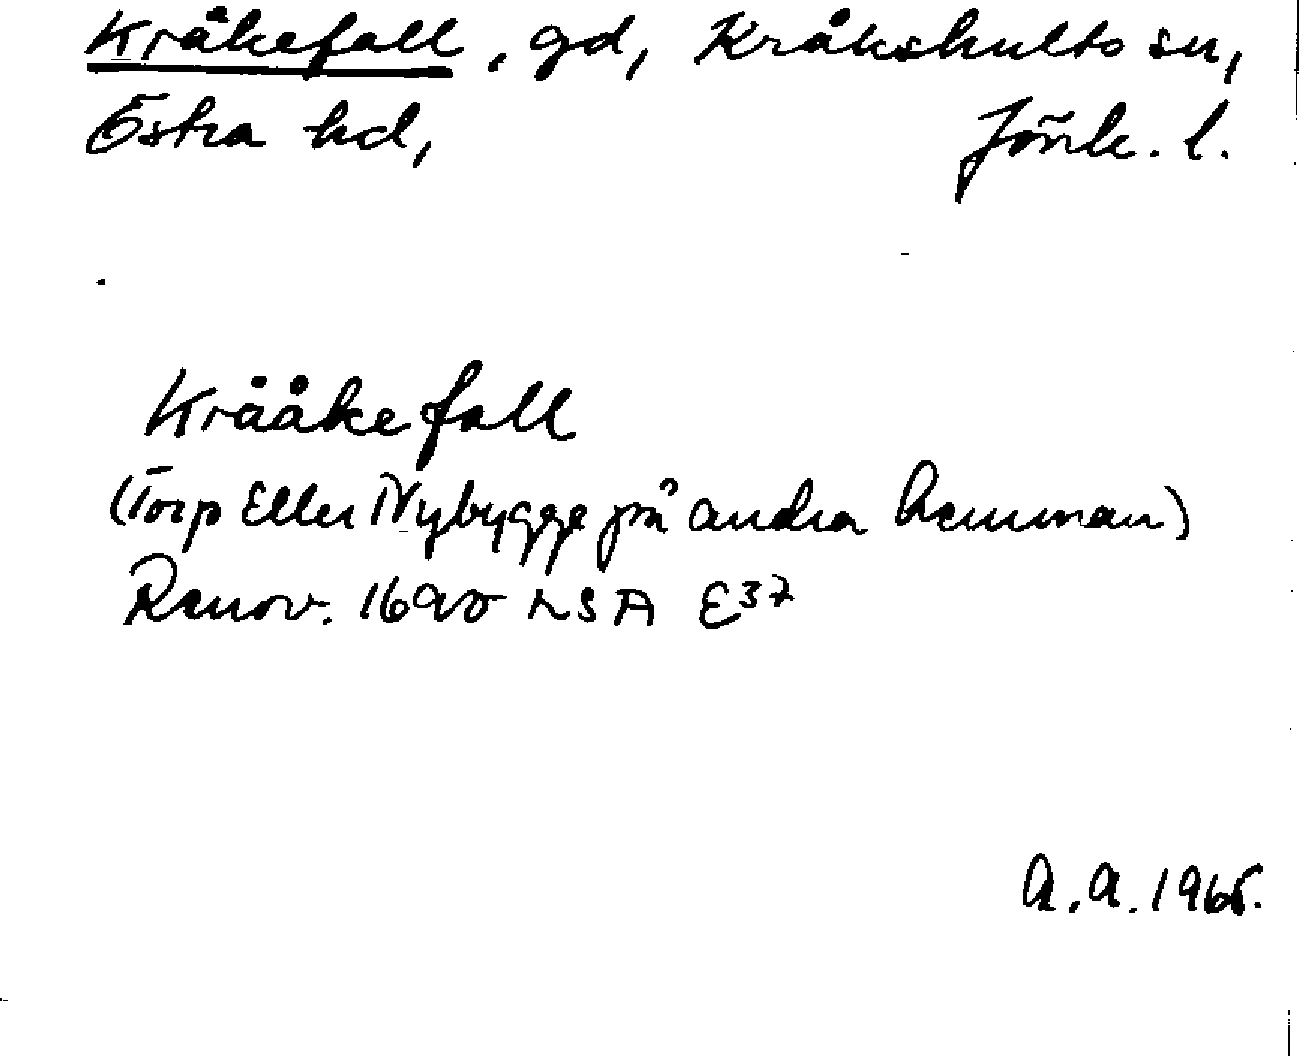 Kråkefall, gd, Kråkshults sn,
Östra hd, Jönk. l.
Krååkefall
(Torp Eller Nybygge på andra hemman)
Renov. 1690 LSA E37
A.A. 1965.